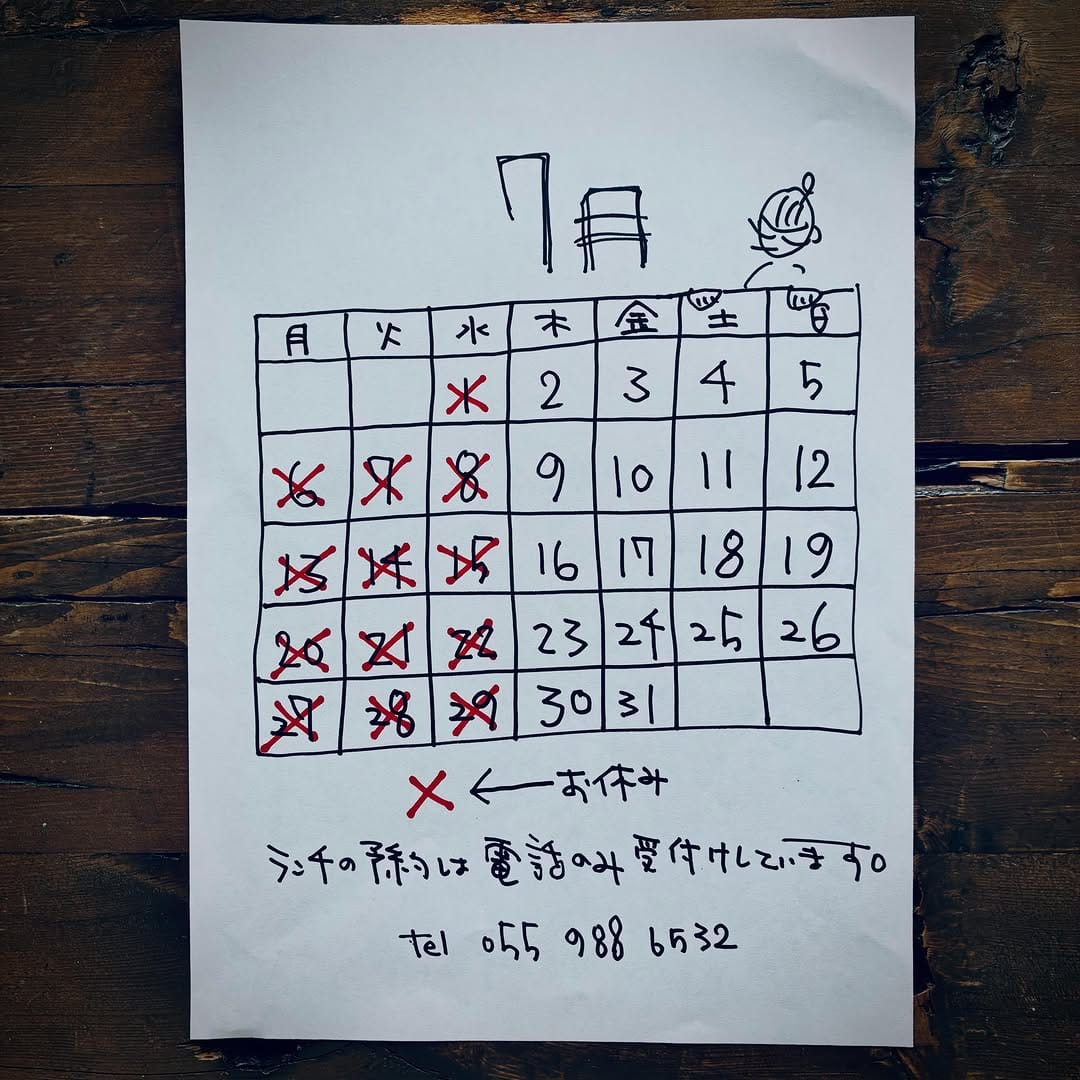 7月
月 火 水 木 金 土 日
1 2 3 4 5
6 7 8 9 10 11 12
13 14 15 16 17 18 19
20 21 22 23 24 25 26
27 28 29 30 31
×←お休み
ランチの予約は電話のみ受付けしています。
tel 055 988 6532